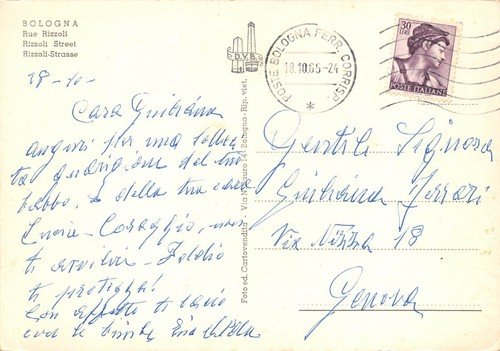 BOLOGNA
Rue Rizzoli
Rizzoli Street
Rizzoli-Strasse
18-10-
Cara Giuliana
auguri per una solleci
ta guarigione del tuo
babbo, e della tua cara
Coraggio, non
ti avvilire - Iddio
ti protegga!
con affetto ti bacio
con le bimbe
D.V.B.
Foto ed. Cartovendita - Via Nosadella 14 Bologna - Rip. viet.
POSTE BOLOGNA FERR. CORRISP.
18.10.65-24
30
LIRE
POSTE ITALIANE
Gentile Signora
Giuliana Ferrari
Via Nizza 18
Genova